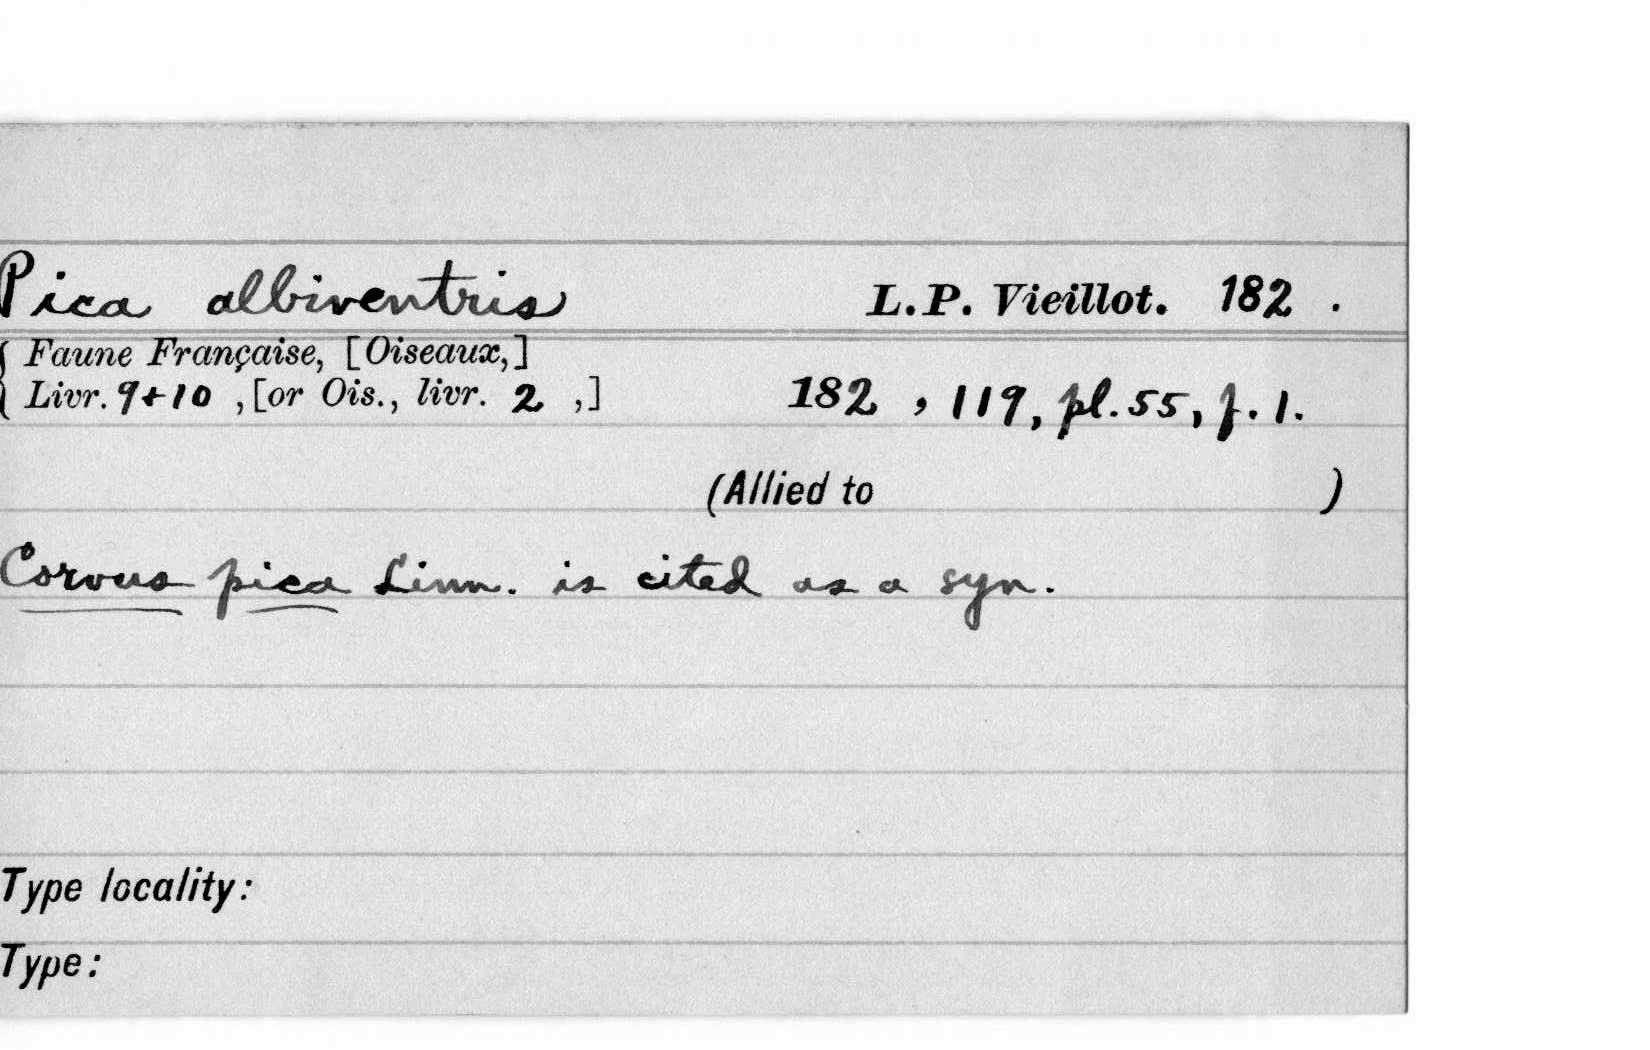 Pica albiventris L.P. Vieillot. 182 .
{ Faune Française, [Oiseaux,]
Livr. 9+10 , [or Ois., livr. 2 ,] 182 , 119, pl. 55, f. 1.
(Allied to )
Corvus pica Linn. is cited as a syn.
Type locality:
Type: